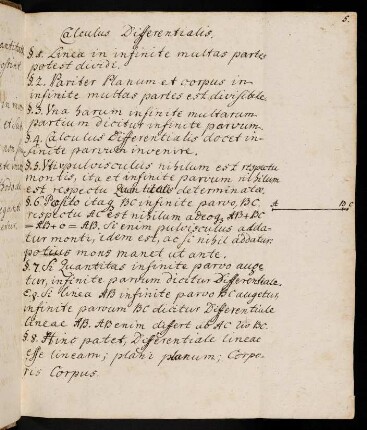 5.
Calculus Differentialis.
§. 1. Linea in infinite multas partes
potest dividi.
§. 2. Pariter Planum et corpus in
infinite multas partes est divisibile
§. 3. Una harum infinite multarum
partium dicitur infinite parvum.
§. 4. Calculus Differentialis docet in-
finite parvum invenire.
§. 5. Uti pulvisculus nihilum est respectu
montis, ita et infinite parvum nihilum
est respectu Quantitatis determinatae.
§. 6. Posito itaq BC infinite parvo, BC
respectu AC est nihilum adeoq, AB+BC
=AB+0=AB. Si enim pulvisculus adda-
tur monti, idem est, ac si nihil addatur
potius mons manet ut ante.
§. 7. Si Quantitas infinite parvo auge
tur, infinite parvum dicitur Differentiale.
E.g. Si linea AB infinite parvo BC augetur,
infinite parvum BC dicitur Differentiale
lineae AB. AB enim differt ab AC τῷ BC.
§. 8. Hinc patet, Differentiale lineae
esse lineam; plani planum; Corpo-
ris Corpus.
A B C